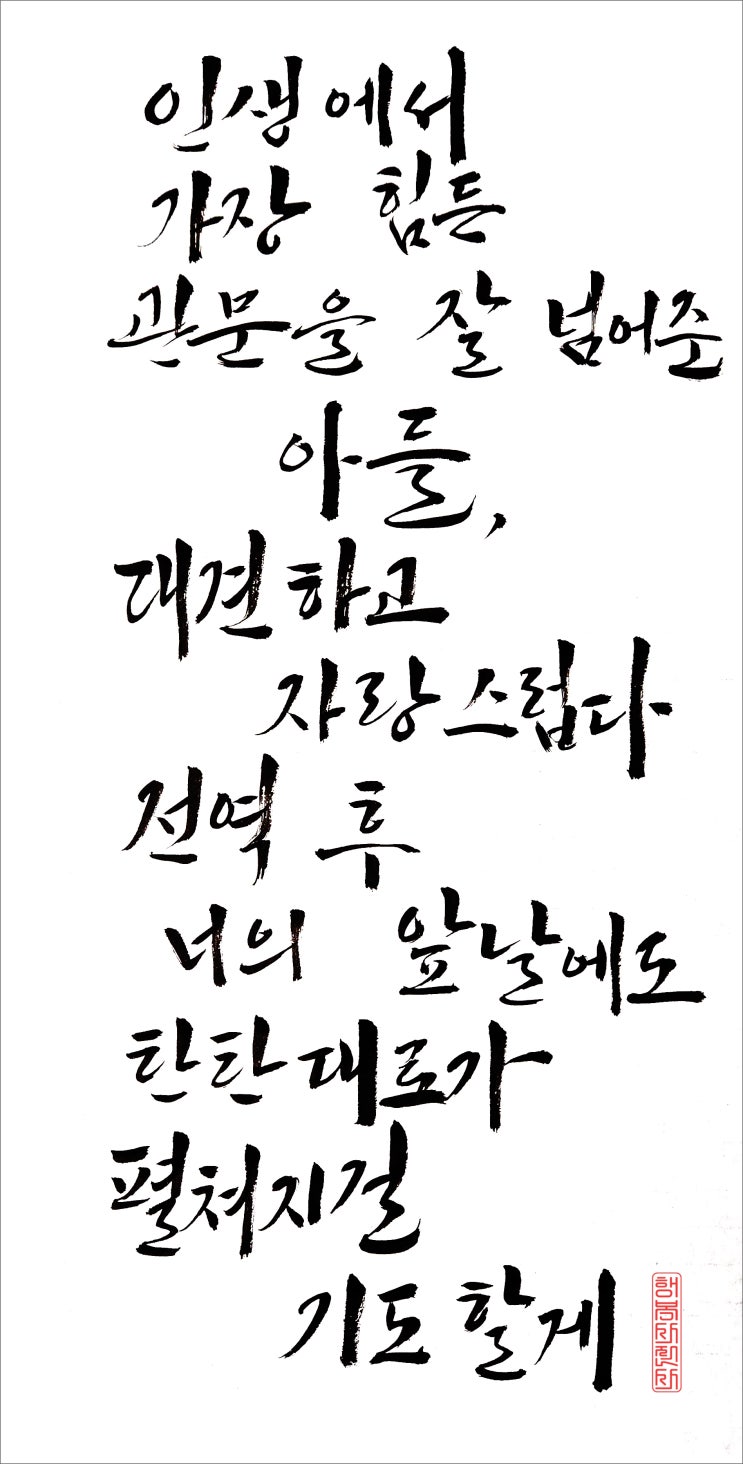 인생에서
가장 힘든
관문을 잘 넘어준
아들,
대견하고
자랑스럽다
전역 후
너의 앞날에도
탄탄대로가
펼쳐지걸
기도할게